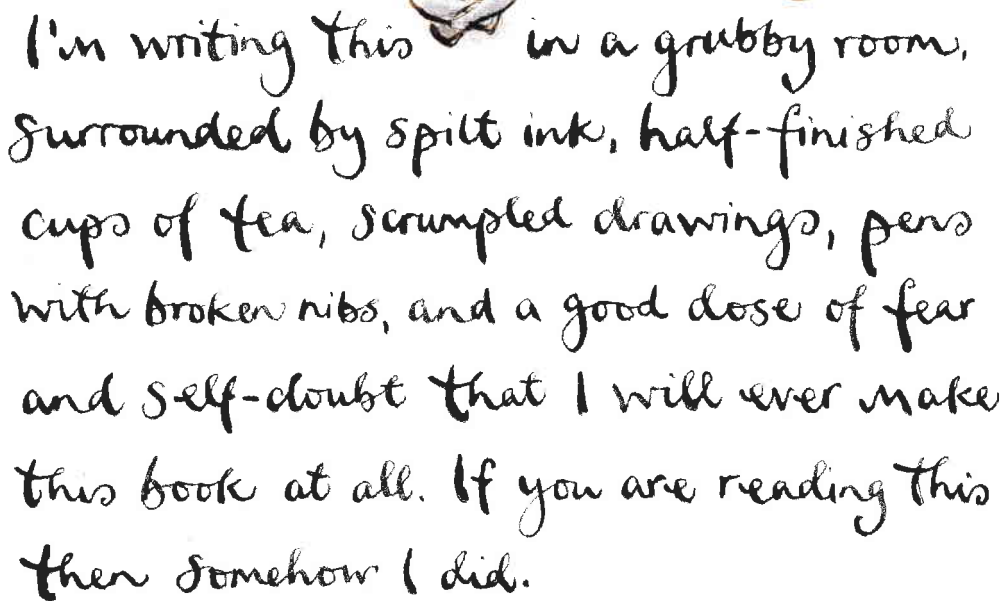 I'm writing this in a grubby room,
surrounded by spilt ink, half-finished
cups of tea, scrumpled drawings, pens
with broken nibs, and a good dose of fear
and self-doubt that I will ever make
this book at all. If you are reading this
then somehow I did.